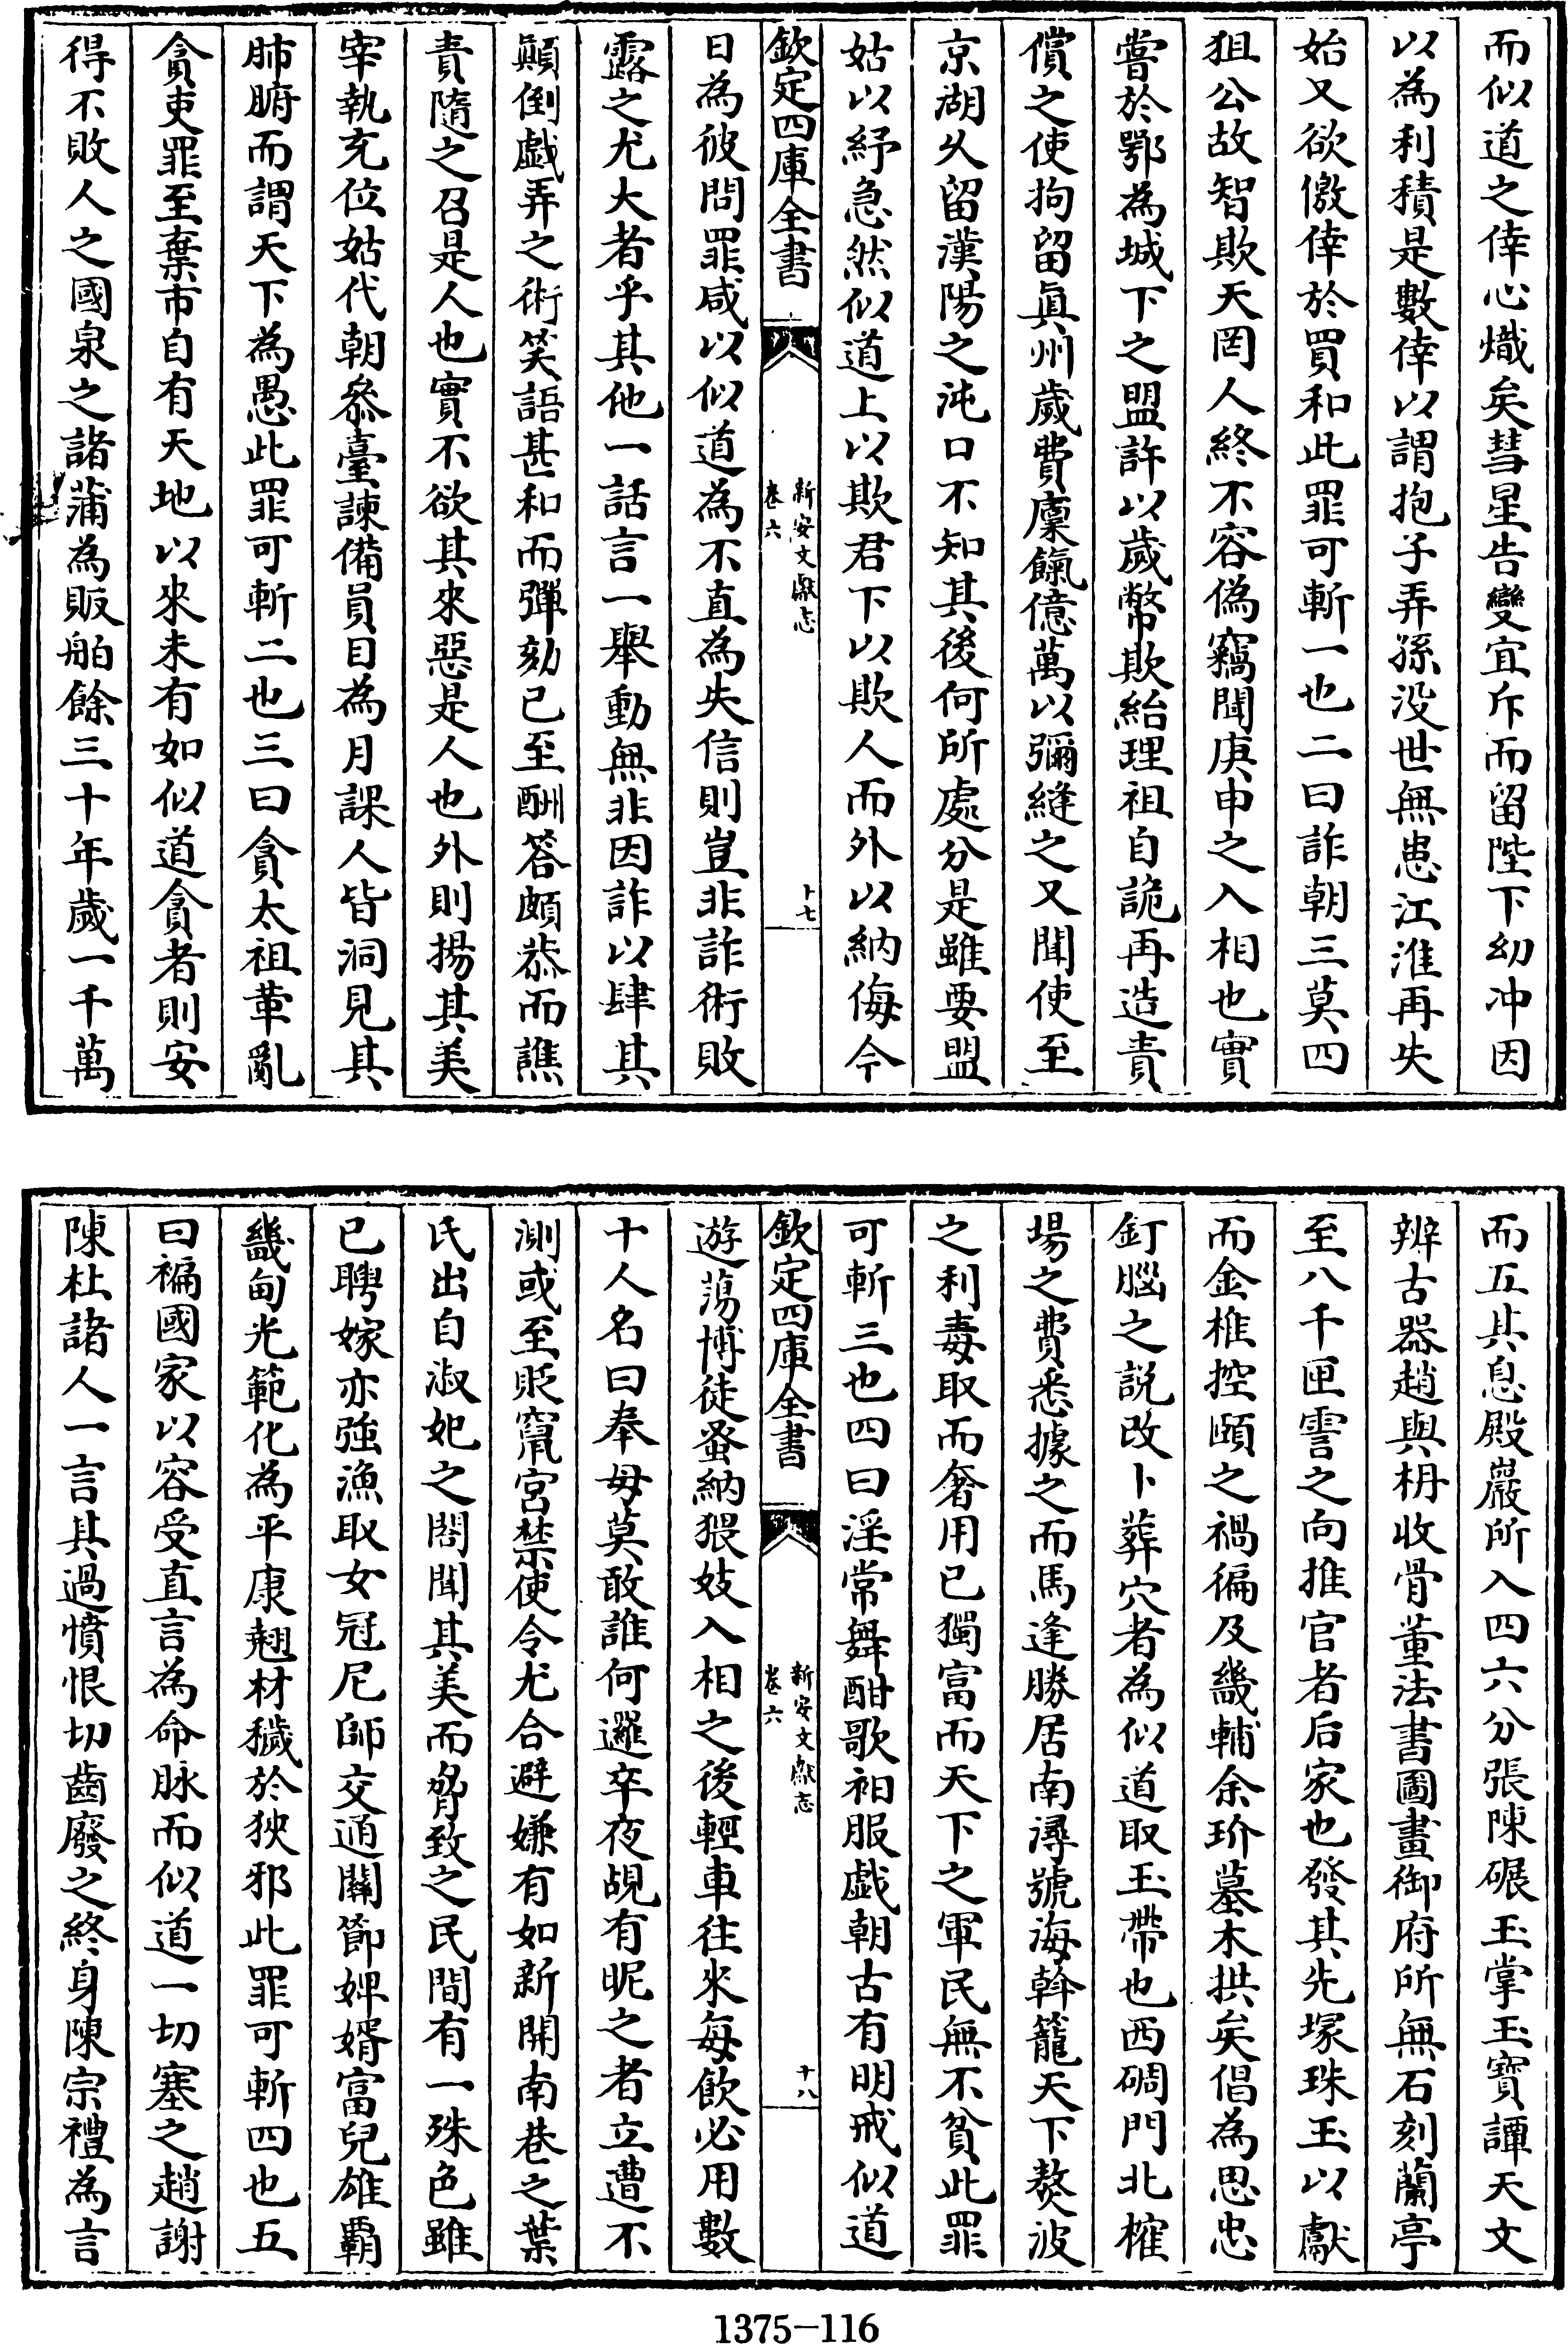 而似道之倖心熾矣彗星告變宜斥而留陛下幼冲因
以為利積是數倖以謂抱子弄孫没世無患江淮再失
始又欲儌倖於買和此罪可斬一也二曰詐朝三莫四
狙公故智欺天罔人終不容偽竊聞庚申之入相也實
嘗於鄂為城下之盟許以歲幣欺紿理祖自詭再造責
償之使拘留眞州歲費廩餼億萬以彌縫之又聞使至
京湖乆留漢陽之沌口不知其後何所處分是雖要盟
姑以紓急然似道上以欺君下以欺人而外以納侮今
欽定四庫全書
新安文獻志
卷六
十七
日為彼問罪咸以似道為不直為失信則豈非詐術敗
露之尤大者乎其他一話言一舉動無非因詐以肆其
顛倒戯弄之術笑語甚和而彈劾已至酬答頗恭而譙
責隨之召是人也實不欲其來惡是人也外則揚其美
宰執充位姑代朝叅臺諫備員目為月課人皆洞見其
肺腑而謂天下為愚此罪可斬二也三曰貪太祖革亂
貪吏罪至棄市自有天地以來未有如似道貪者則安
得不敗人之國泉之諸蒲為販舶餘三十年歲一千萬
而五其息殿巖所入四六分張陳碾玉掌玉寳譚天文
辨古器趙與枏收骨董法書圖畫御府所無石刻蘭亭
至八千匣霅之向推官者后家也發其先塚珠玉以獻
而金椎控頤之禍徧及畿輔余玠墓木拱矣倡為思忠
釘腦之説改卜葬穴者為似道取玉帶也西碉門北榷
場之費悉據之而馬逢勝居南潯號海斡籠天下熬波
之利毒取而奢用已獨富而天下之軍民無不貧此罪
可斬三也四曰淫常舞酣歌袒服戯朝古有明戒似道
欽定四庫全書
新安文獻志
卷六
十八
遊蕩博徒蚤納猥妓入相之後輕車往來每飲必用數
十人名曰奉母莫敢誰何邏卒夜覘有昵之者立遭不
測或至貶竄宮禁使令尤合避嫌有如新開南巷之葉
氏出自淑妃之閤聞其美而脅致之民間有一殊色雖
已聘嫁亦強漁取女冠尼師交通關節婢婿富兒雄覇
畿甸光範化為平康翹材穢於狹邪此罪可斬四也五
曰褊國家以容受直言為命脉而似道一切塞之趙謝
陳杜諸人一言其過憤恨切齒廢之終身陳宗禮為言
1375-116